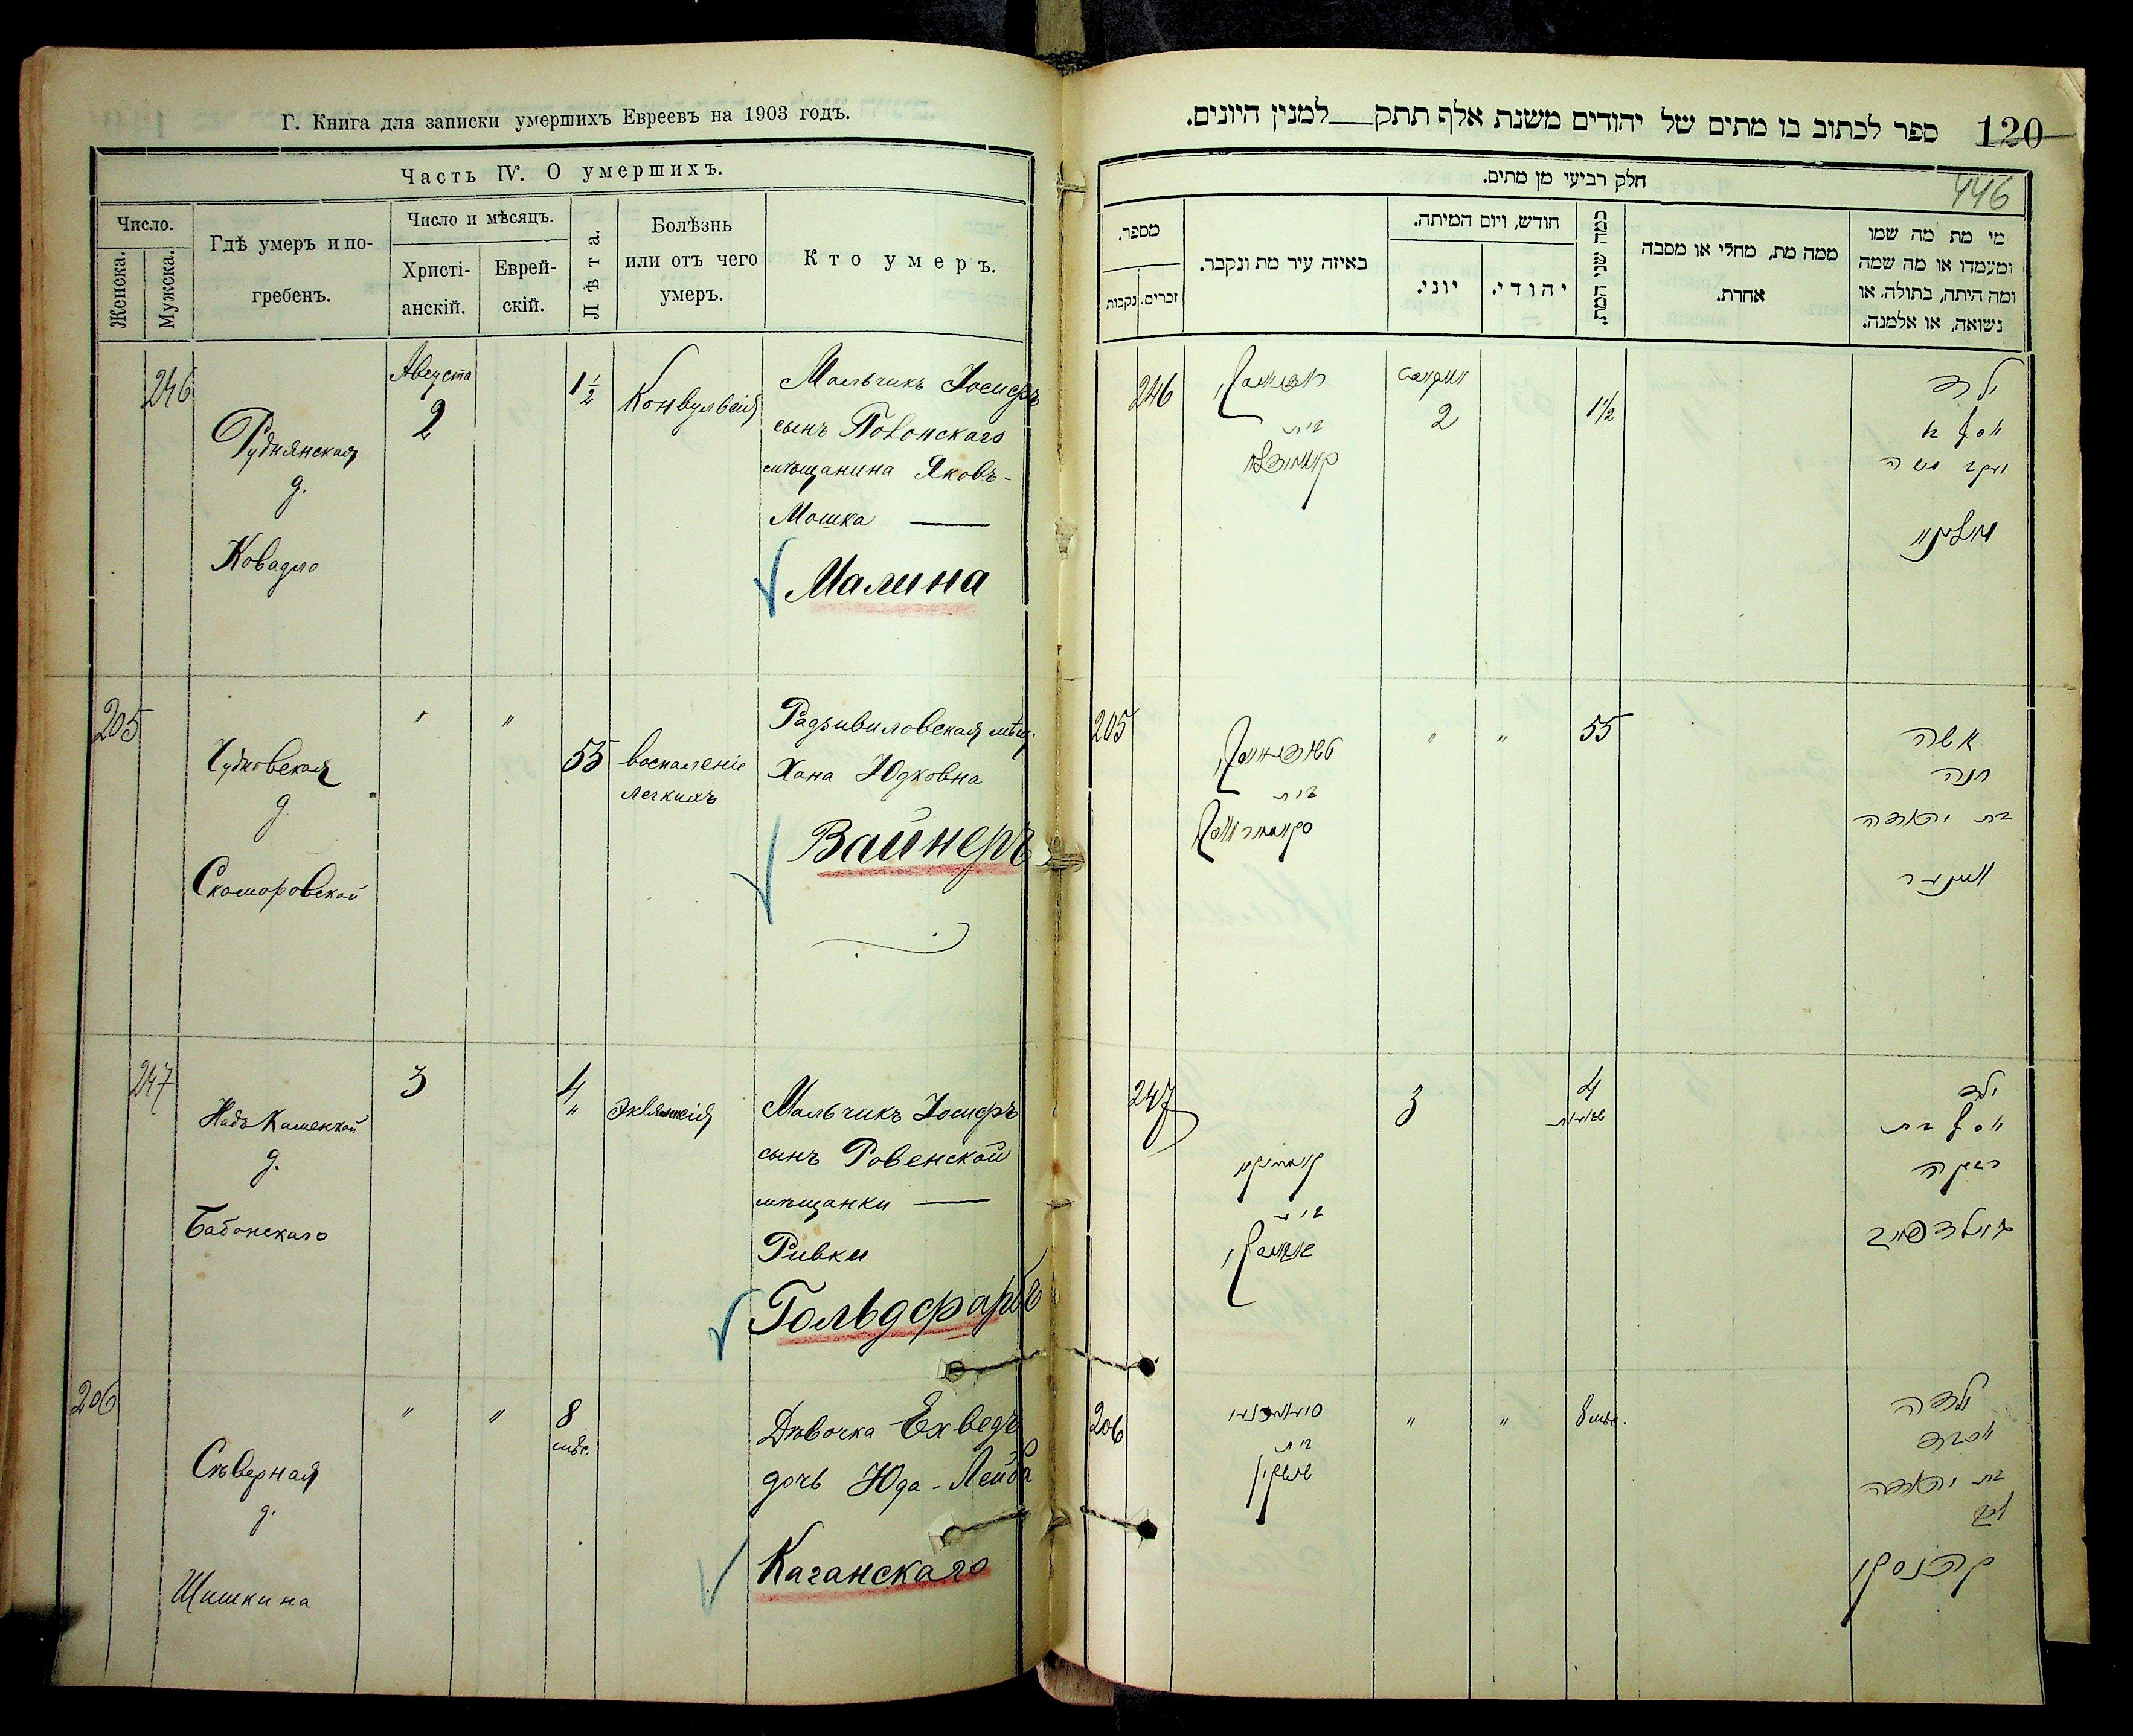 Г. Книга для записки умершихъ Евреевъ на 1903 годъ.
Часть IV. О умершихъ.
Число.
Женска.
Мужска.
Гдѣ умеръ и по-
гребенъ.
Число и мѣсяцъ.
Христі-
анскій.
Еврей-
скій.
Лѣта.
Болѣзнь
или отъ чего
умеръ.
Кто умеръ.
246
Руднянская
д.
Ковадло
Августа
2
1½
Конвульсія
Мальчикъ Іосифъ
сынъ Полонскаго
мѣщанина Яковъ-
Мошка
Малина
205
Чудновская
д.
Скоморовской
"
"
55
воспаленіе
легкихъ
Радзивиловская мѣщ.
Хана Юдковна
Вайнеръ
247
Надъ Каменкой
д.
Бабонскаго
3
4
"
Мальчикъ Іосифъ
сынъ Ровенской
мѣщанки
Ривки
Гольдфарбъ
206
Сѣверная
д.
Шишкина
"
"
8
мѣс.
Дѣвочка Ехведъ
дочь Юда-Лейба
Каганскаго
ספר לכתוב בו מתים של יהודים משנת אלף תתק למנין היונים.
120
446
חלק רביעי מן מתים.
מספר.
זכרים.
נקבות
באיזה עיר מת ונקבר.
חודש, ויום המיתה.
יוני.
יהודי.
כמה שני המת.
ממה מת, מחלי או מסבה
אחרת.
מי מת מה שמו
ומעמדו או מה שמה
ומה היתה, בתולה, או
נשואה, או אלמנה.
246
בית
אווגוסט
2
1½
ילד
יוסף בן
יעקב משה
מאלינא
205
בית
"
"
55
אשה
חנה
בת יהודה
וויינער
247
בית
3
4
ילד
יוסף בת
רבקה
גאלדפארב
206
בית
שישקין
"
"
8 мѣс.
ילדה
יוכבד
בת יהודה
ליב
קאהנסקי